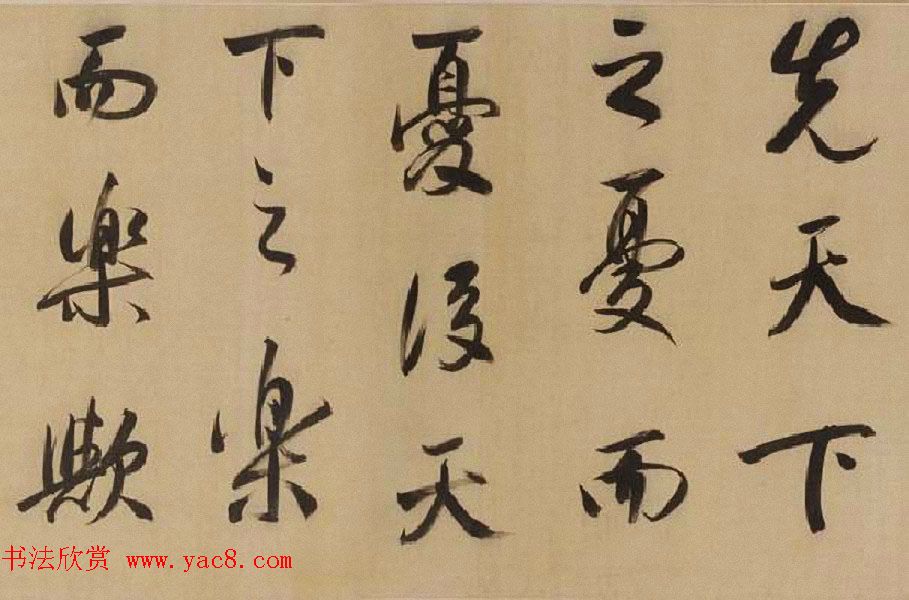 先天下
之憂而
憂後天
下之樂
而樂歟
书法欣赏 www.yac8.com